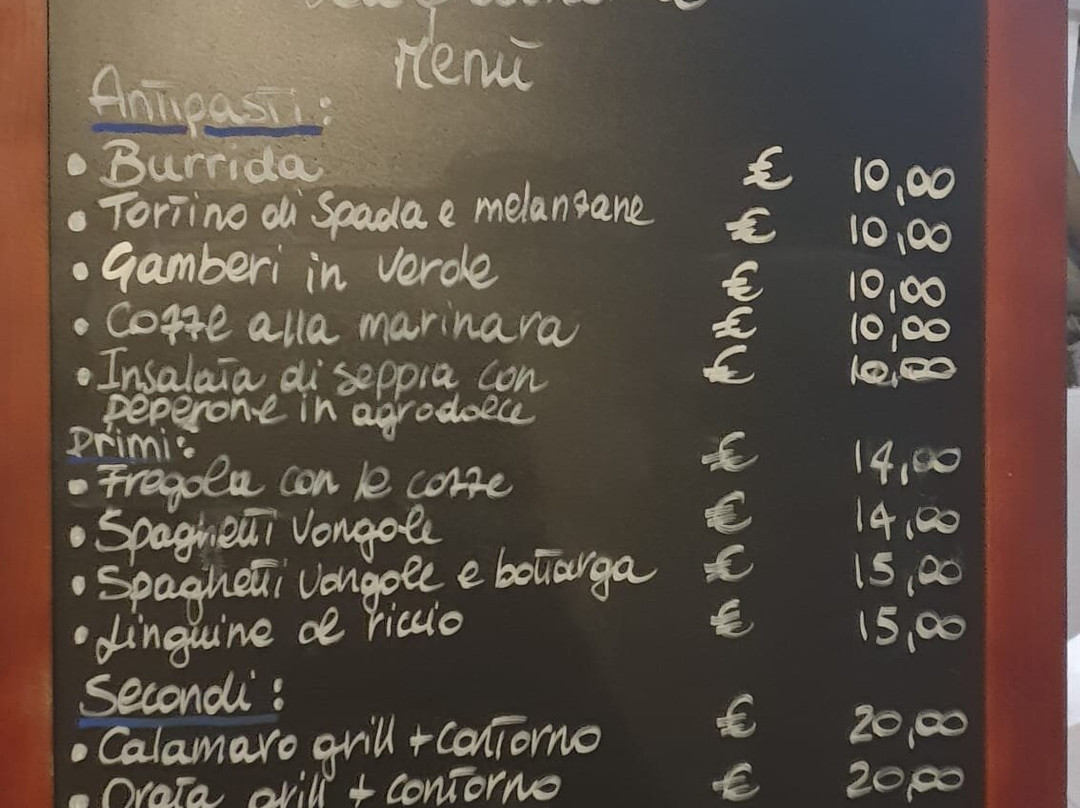 Menù
Antipasti:
• Burrida € 10,00
• Tortino di Spada e melanzane € 10,00
• Gamberi in verde € 10,00
• Cozze alla marinara € 10,00
• Insalata di seppia con € 10,00
peperone in agrodolce
Primi:
• Fregola con le cozze € 14,00
• Spaghetti Vongole € 14,00
• Spaghetti Vongole e bottarga € 15,00
• Linguine al riccio € 15,00
Secondi:
• Calamaro grill + contorno € 20,00
• Orata grill + contorno € 20,00